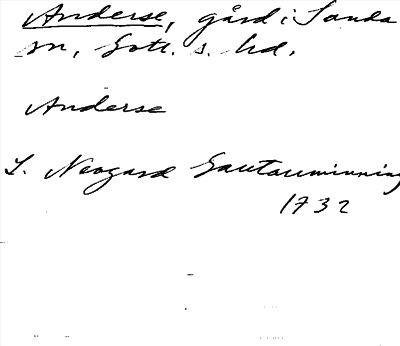 Anderse, gård i Sanda
sn, Gotl. s. hd.
Anderse
L. Neogard Gautauminning
1732